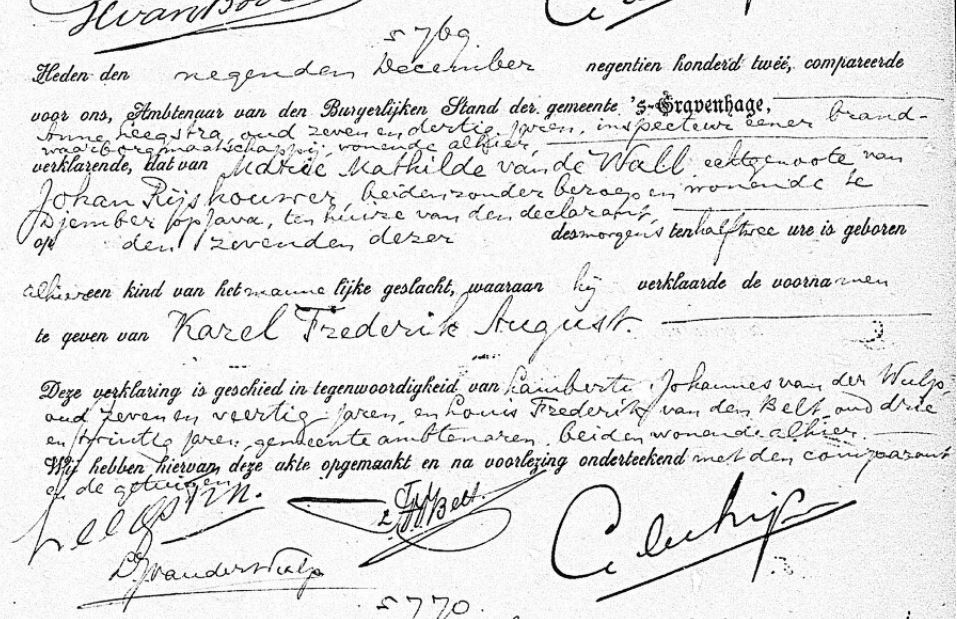 5769
Heden den negenden December negentien honderd twee, compareerde
voor ons, Ambtenaar van den Burgerlijken Stand der gemeente 's-Gravenhage,
Anne Leegstra, oud zeven en dertig jaren, inspecteur eener brand-
waarborgmaatschappij, wonende alhier,
verklarende, dat van Matide Mathilde van de Wall, echtgenoote van
Johan Rijskouwer, beiden zonder beroep en wonende te
Djember op Java, ten huize van den declarant,
op den zevenden dezer des morgens ten half twee ure is geboren
alhier een kind van het mannelijke geslacht, waaraan hij verklaarde de voornamen
te geven van Karel Frederik August.
Deze verklaring is geschied in tegenwoordigheid van Lamberti Johannes van der Wulp,
oud zeven en veertig jaren, en Louis Frederik van den Belt, oud drie
en twintig jaren, gemeente ambtenaren, beiden wonende alhier.
Wij hebben hiervan deze akte opgemaakt en na voorlezing onderteekend met den comparant
en de getuigen.
Belt.
LJvanderWulp
5770.